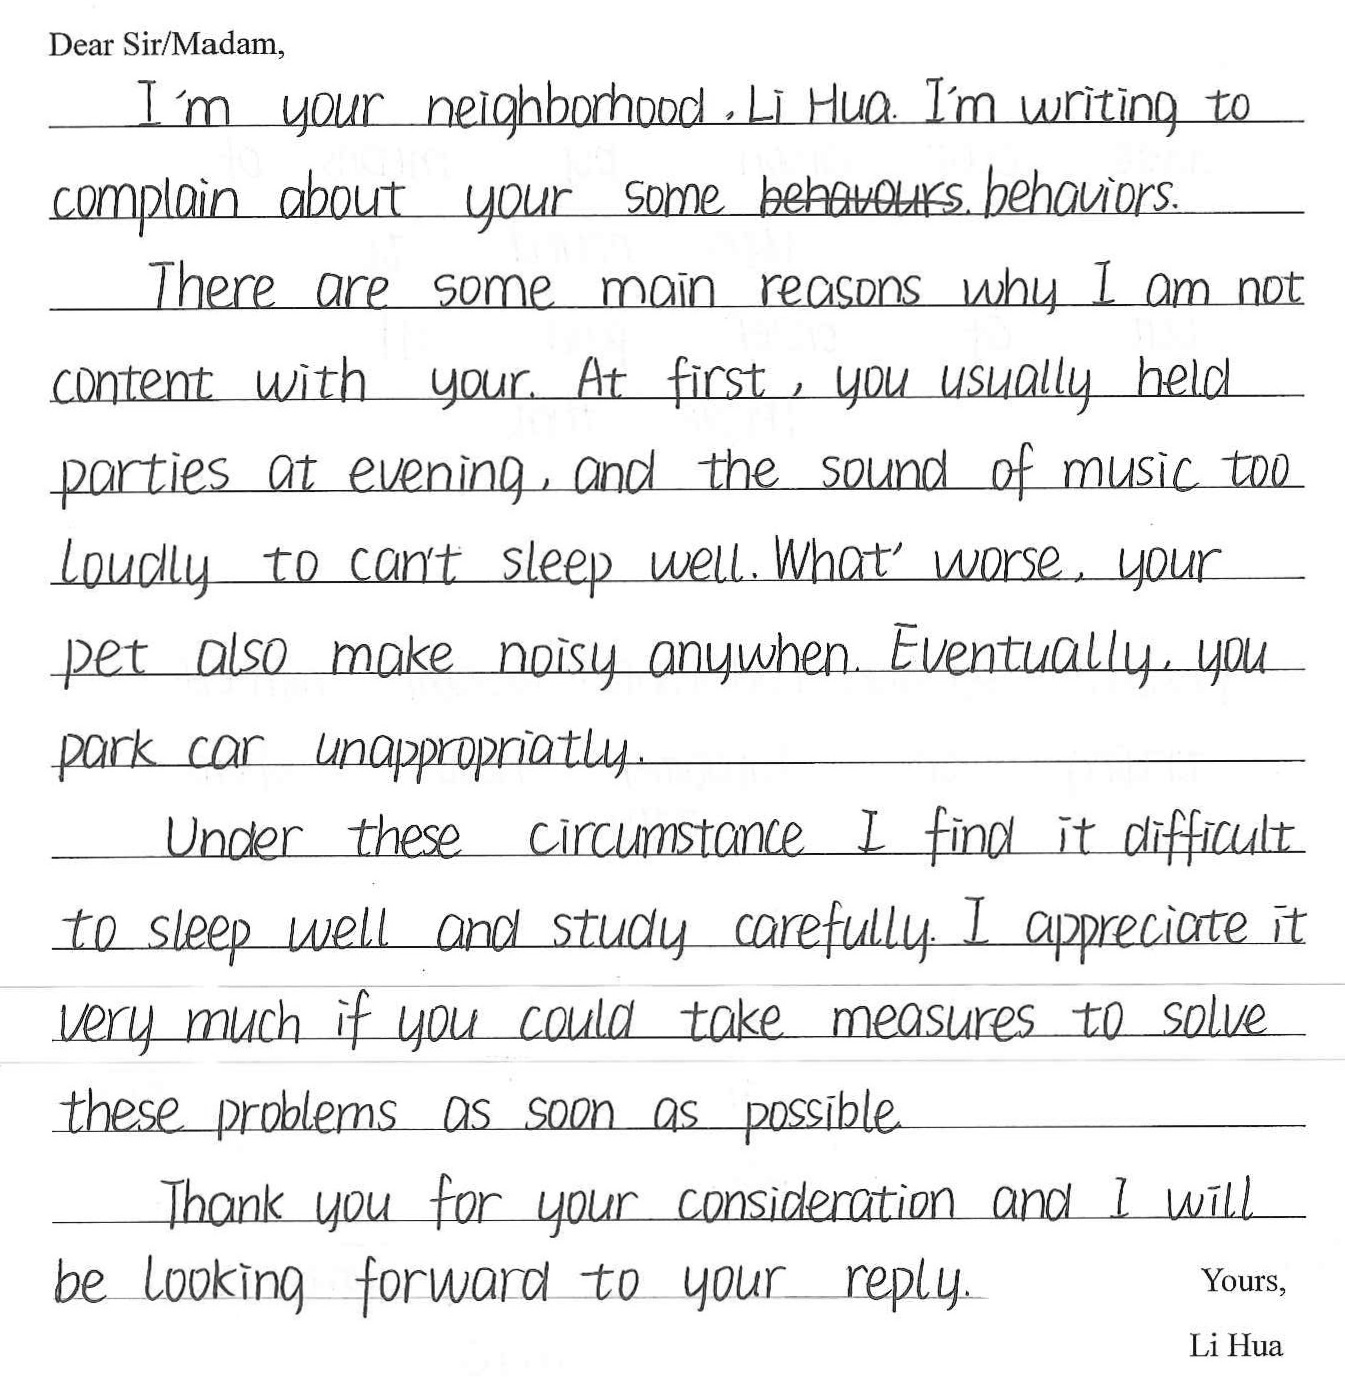 Dear Sir/Madam,
I'm your neighborhood, Li Hua. I'm writing to
complain about your some behavours. behaviors.
There are some main reasons why I am not
content with your. At first, you usually held
parties at evening, and the sound of music too
loudly to can't sleep well. What' worse, your
pet also make noisy anywhen. Eventually, you
park car unappropriatly.
Under these circumstance I find it difficult
to sleep well and study carefully. I appreciate it
very much if you could take measures to solve
these problems as soon as possible
Thank you for your consideration and I will
be looking forward to your reply.
Yours,
Li Hua